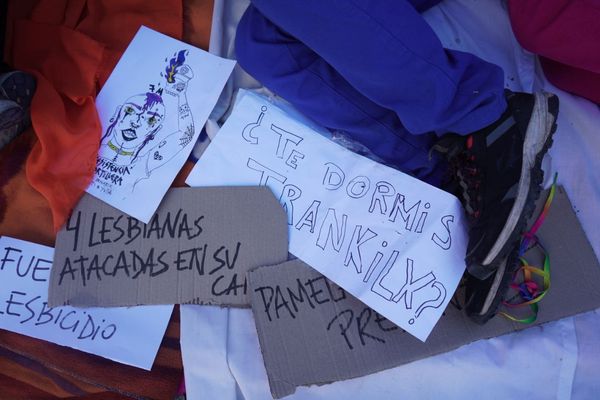 RESISTENCIA
¿TE
DORMIS
TRANKILX?
4 LESBIANAS
ATACADAS EN SU
CA
FUE
LESBICIDIO
PAMEL
PRE